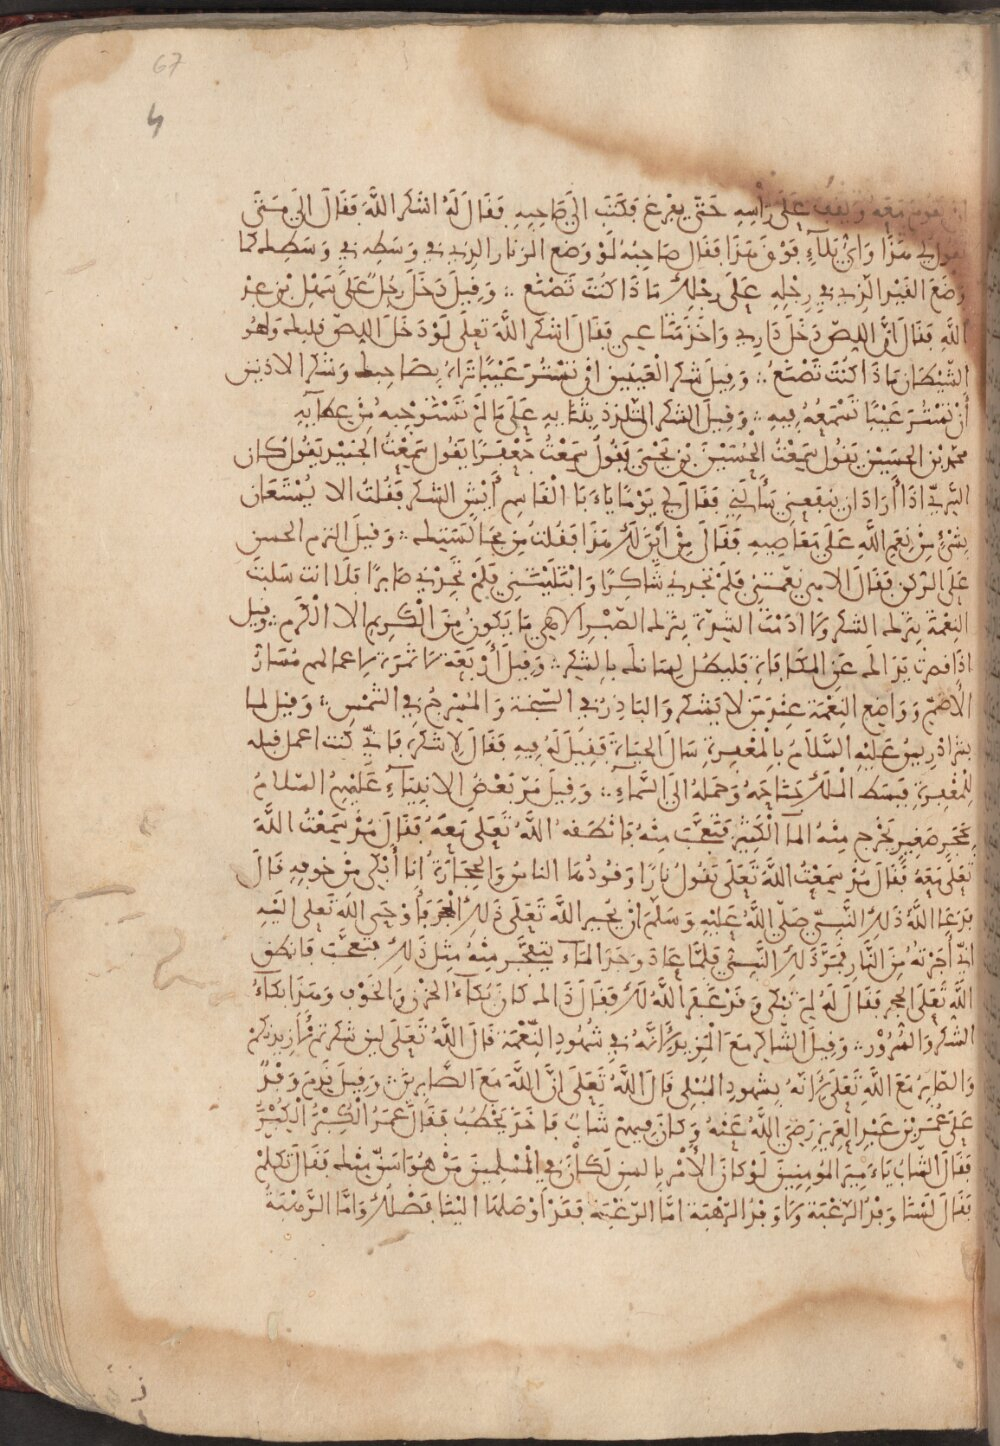 67
4
ان يقوم معه ويقف على رأسه حتى يفرغ فكتب الى صاحبه فقال له اشكر الله فقال الى متى
تقول لي هذا واي بلاء فوق هذا فقال صاحبه لو وضع الزنار الذي في وسطه في وسطك كما
وضع القيد الذي في رجله على رجلك ماذا كنت تصنع ∴ وقيل دخل رجل على سهل بن عبد
الله فقال ان اللص دخل داري واخذ متاعي فقال اشكر الله تعلى لو دخل اللص قلبك وهو
الشيطان ماذا كنت تصنع ∴ وقيل شكر العينين ان تستر عيبا تراه بصاحبك وشكر الاذنين
أن تستر عيبا تسمعه فيه ∴ وقيل الشكر التلذذ بثنايه على ما لم تستوجبه من عطايه
محمد بن الحسين يقول سمعت الحسين بن يحيى يقول سمعت جعفرا يقول سمعت الجنيد يقول كان
السري اذا أراد ان ينفعني سألني فقال لي يوما ياءبا القاسم أيش الشكر فقلت الا يستعان
بشيء من نعم الله على معاصيه فقال من أين لك هذا فقلت من مجالستك ∴ وقيل التزم الحسن
على الركن فقال الاهي نعمتني فلم تجدني شاكرا وابتليتني فلم تجدني صابرا فلا انت سلبت
النعمة بترك الشكر ولا ادمت الشدة بترك الصبر الاهي ما يكون من الكريم الا الكرم ∴ وقيل
اذا قصرت يدك عن المكافاة فليطل لسانك بالشكر ∴ وقيل أربعة لا ثمرة لاعمالهم مسار
الأصم وواضع النعمة عند من لا يشكر والباذر في السبخة والمسرج في الشمس ∴ وقيل لما
بشر ادريس عليه السلام بالمغفرة سال الحياة فقيل له فيه فقال لاشكره فاني كنت اعمل قبله
للمغفرة فبسط الملك جناحه وحمله الى السماء ∴ وقيل مر بعض الانبياء عليهم السلام
بحجر صغير يخرج منه الماء الكثير فتعجب منه فانطقه الله تعلى معه فقال مذ سمعت الله
تعلى معه فقال مذ سمعت الله تعلى يقول نارا وقودها الناس والحجارة انا أبكي من خوفه قال
فدعا الله ذلك النبي صلى الله عليه وسلم ان يجير الله تعلى ذلك الحجر فأوحى الله تعلى اليه
اني أجرته من النار فمر ذلك النبي فلما عاد وجد الماء يتفجر منه مثل ذلك فتعجب فانطق
الله تعلى الحجر فقال له لم تبكي وقد غفر الله لك فقال ذاك كان بكاء الحزن والخوف وهذا بكاء
الشكر والسرور ∴ وقيل الشاكر مع المزيد لأنه في شهود النعمة قال الله تعلى لين شكرتم لأزيدنكم
والصابر مع الله تعلى لأنه بشهود المبلي قال الله تعلى إن الله مع الصابرين ∴ وقيل قدم وفد
على عمر بن عبد العزيز رضي الله عنه وكان فيهم شاب فاخذ يخطب فقال عمر الكبر الكبر
فقال الشاب ياءمير المومنين لو كان الأمر بالسن لكان في المسلمين من هو اسن منك فقال تكلم
فقال لسنا وفد الرغبة ولا وفد الرهبة اما الرغبة فقد اوصلها الينا فضلك واما الرهبة